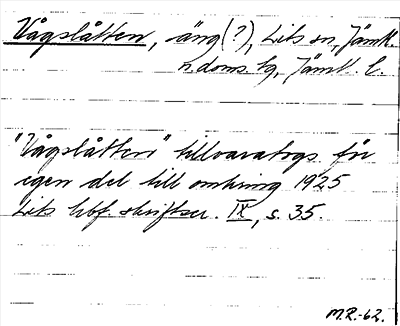 Vågslåtten, äng(?), Lits sn, Jämtl.
n. doms. hg, Jämtl. l.
"Vågslåtten" tillvaratogs för
egen del till omkring 1925
Lits hbf. skriftser. IX, s. 35.
M.R.-62.